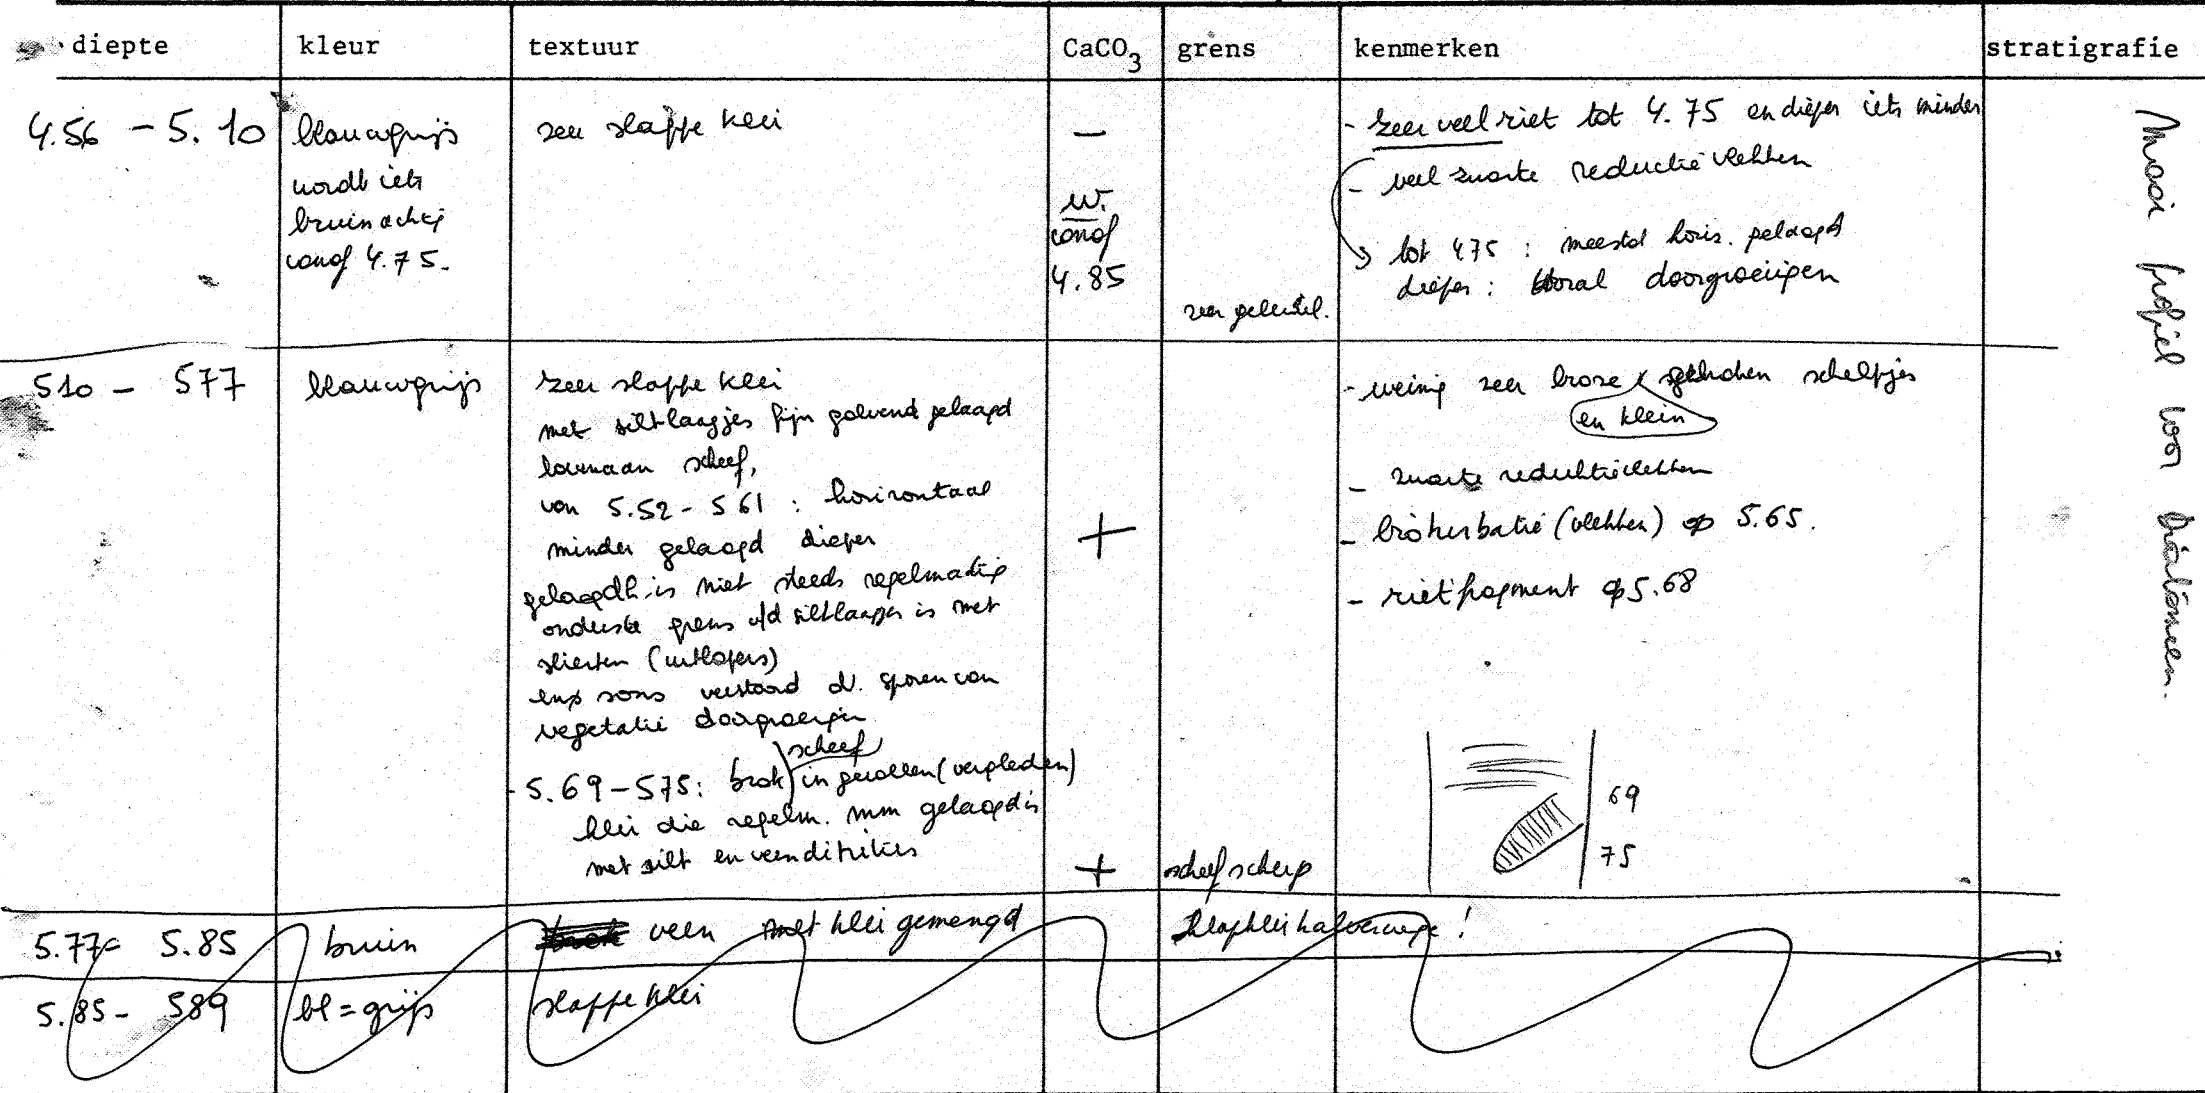 diepte kleur textuur CaCO3 grens kenmerken stratigrafie
4.56 - 5.10
blauwgrijs
wordt iets
bruinachtig
vanaf 4.75.
zeer slappe klei
-
w.
vanaf
4.85
zeer geleidel.
- zeer veel riet tot 4.75 en dieper iets minder
- veel zwarte reductievlekken
tot 4.75 : meestal horiz. gelaagd
dieper : vooral doorgroeiingen
510 - 577
blauwgrijs
zeer slappe klei
met siltlaagjes fijn golvend gelaagd
bovenaan scheef,
van 5.52 - 561 : horizontaal
minder gelaagd dieper
gelaagdh. is niet steeds regelmatig
onderste grens v/d siltlaagjes is met
slierten (uitlopers)
soms verstoord d. sporen van
vegetatie doorgroeiingen
scheef
- 5.69 - 575 : brok in gerollen (vergleden)
klei die regelm. mm gelaagd is
met silt en veendetritus
+
+
scheef scherp
- weinig zeer broze gebroken schelpjes
en klein
- zwarte reduktievlekken
- bioturbatie (vlekken) op 5.65.
- rietfragment op 5.68
69
75
5.77 - 5.85
bruin
veen met klei gemengd
5.85 - 589
bl = grijs
slappe klei
Mooi profiel voor Diatomeen.